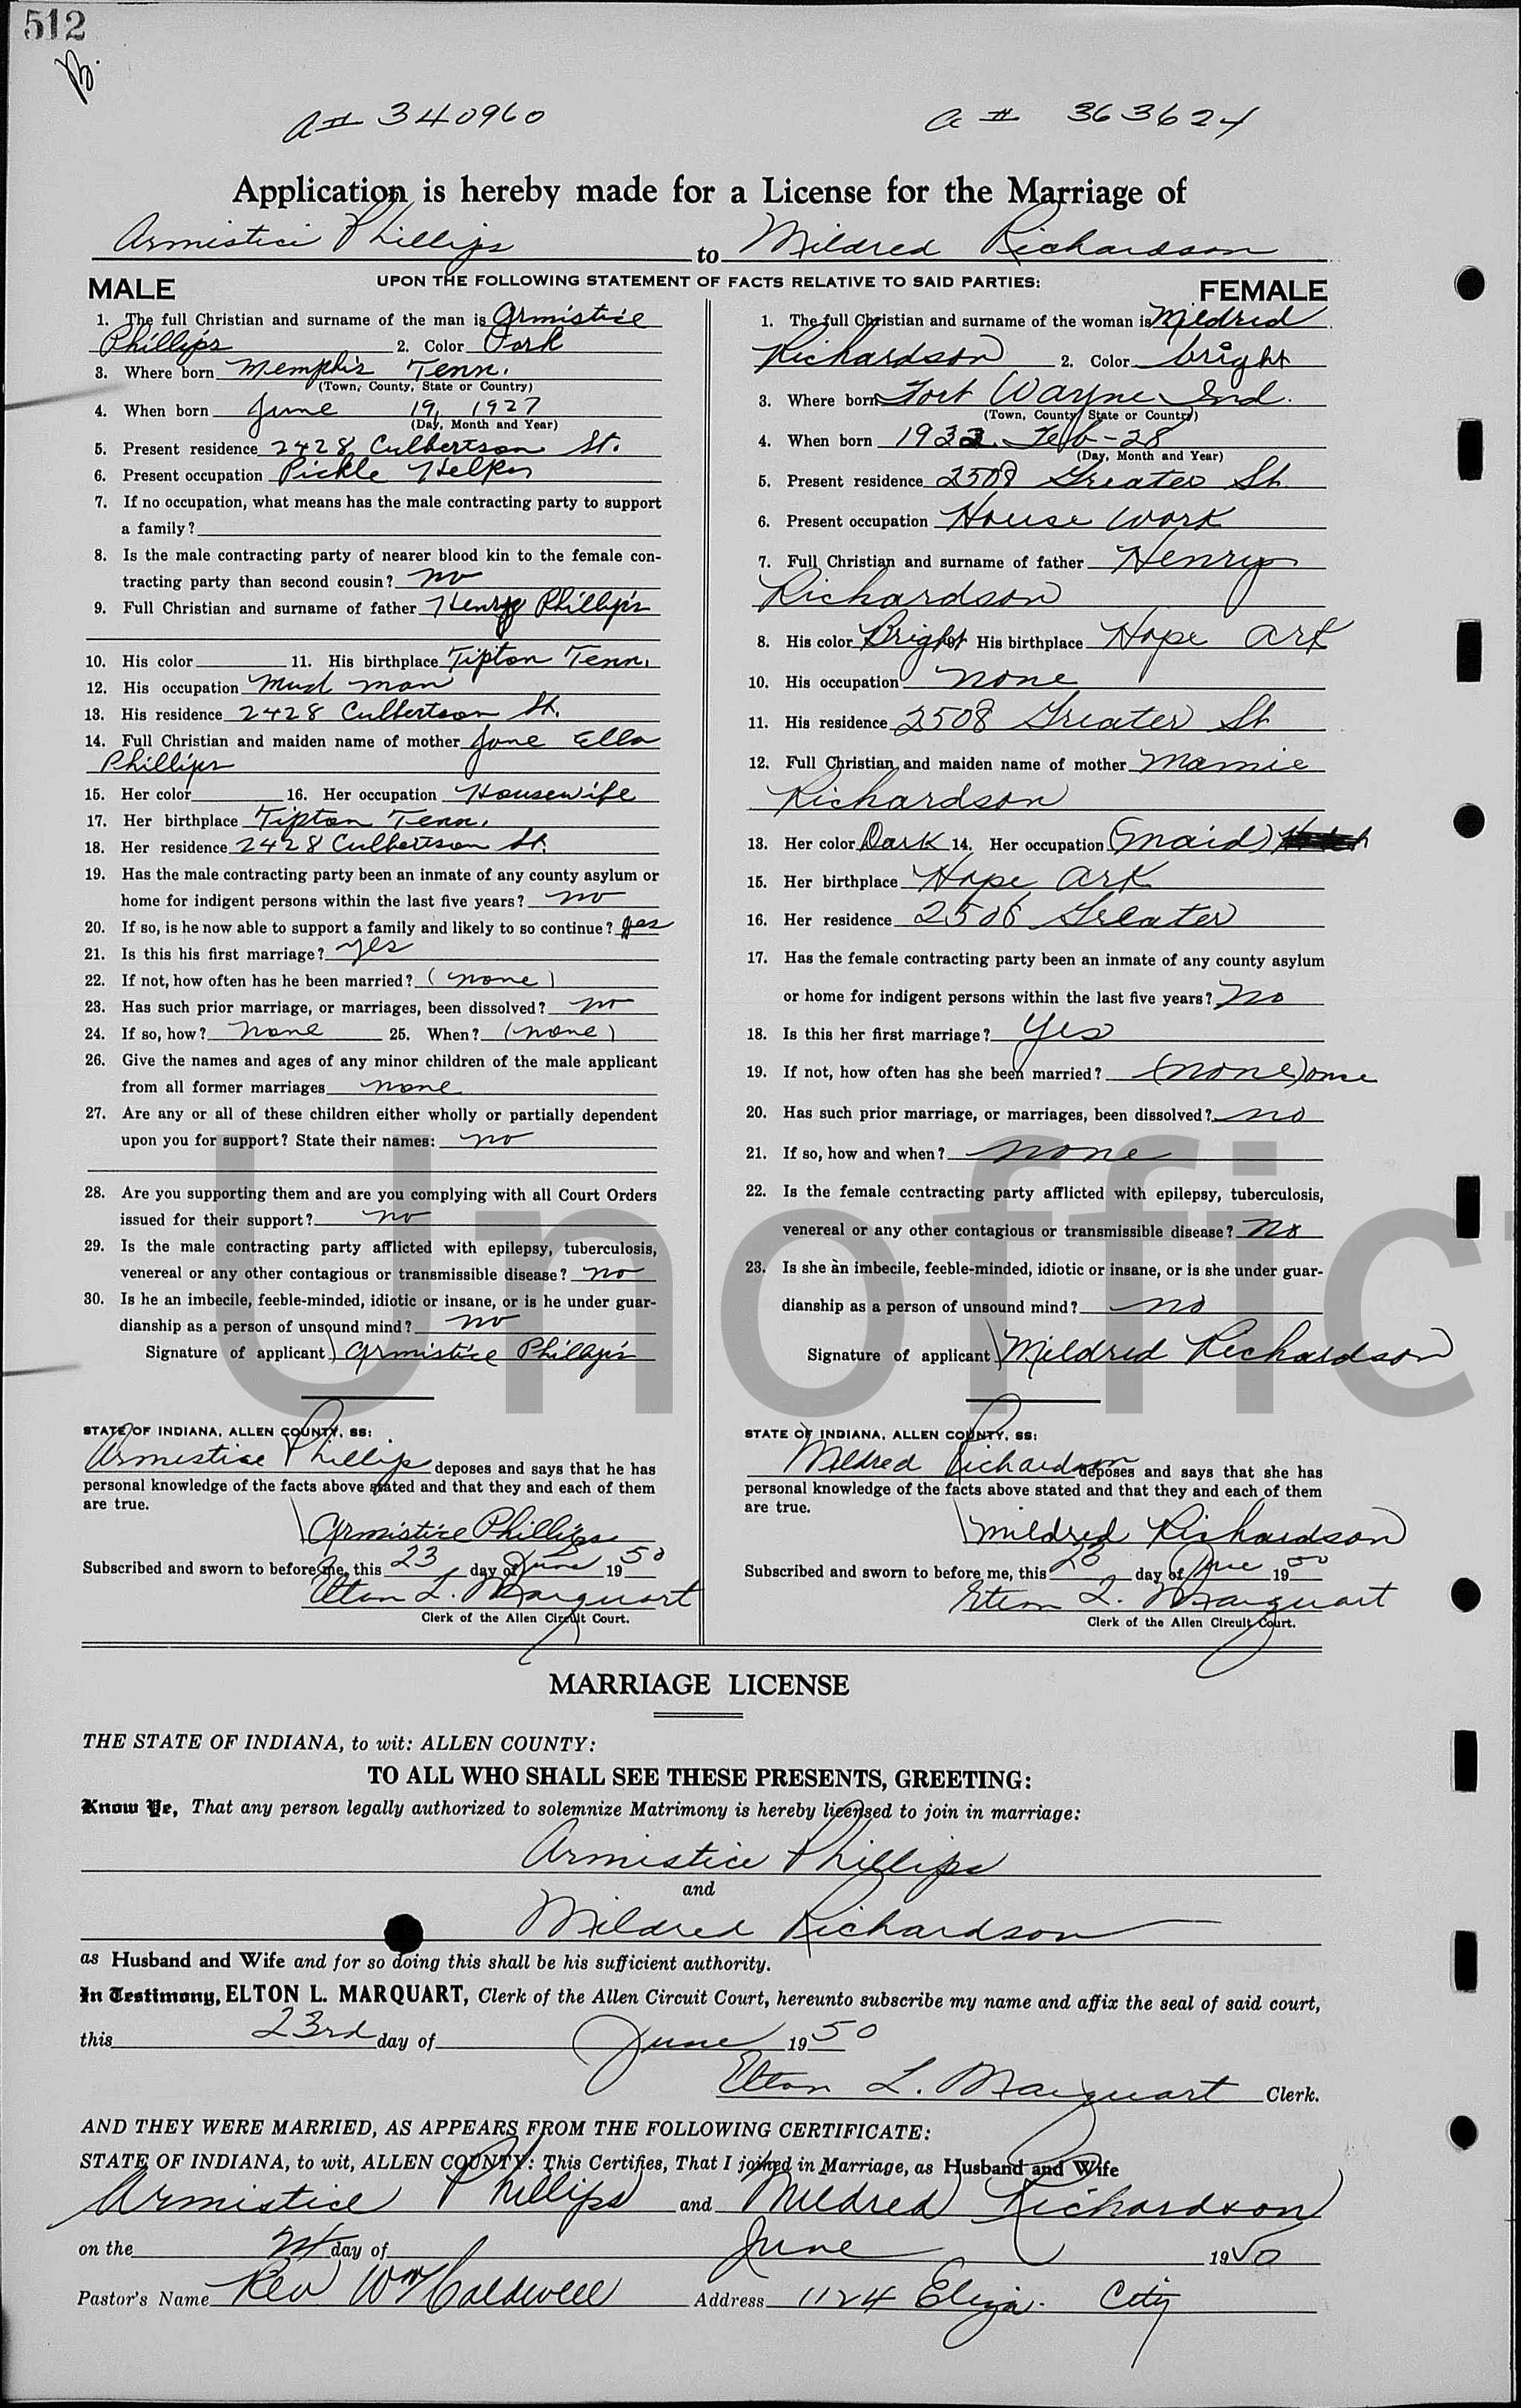 512
B.
A# 340960
A# 363624
Application is hereby made for a License for the Marriage of
Armistice Phillips to Mildred Richardson
UPON THE FOLLOWING STATEMENT OF FACTS RELATIVE TO SAID PARTIES:
MALE
1. The full Christian and surname of the man is Armistice
Phillips 2. Color Dark
3. Where born Memphis Tenn.
(Town, County, State or Country)
4. When born June 19, 1927
(Day, Month and Year)
5. Present residence 2428 Culbertson St.
6. Present occupation Pickle Helper
7. If no occupation, what means has the male contracting party to support
a family?
8. Is the male contracting party of nearer blood kin to the female con-
tracting party than second cousin? no
9. Full Christian and surname of father Henry Phillips
10. His color 11. His birthplace Tipton Tenn.
12. His occupation Mud man
13. His residence 2428 Culbertson St.
14. Full Christian and maiden name of mother Jane Ella
Phillips
15. Her color 16. Her occupation Housewife
17. Her birthplace Tipton Tenn.
18. Her residence 2428 Culbertson St.
19. Has the male contracting party been an inmate of any county asylum or
home for indigent persons within the last five years? no
20. If so, is he now able to support a family and likely to so continue? yes
21. Is this his first marriage? yes
22. If not, how often has he been married? (none)
23. Has such prior marriage, or marriages, been dissolved? no
24. If so, how? none 25. When? (none)
26. Give the names and ages of any minor children of the male applicant
from all former marriages none
27. Are any or all of these children either wholly or partially dependent
upon you for support? State their names: no
28. Are you supporting them and are you complying with all Court Orders
issued for their support? no
29. Is the male contracting party afflicted with epilepsy, tuberculosis,
venereal or any other contagious or transmissible disease? no
30. Is he an imbecile, feeble-minded, idiotic or insane, or is he under guar-
dianship as a person of unsound mind? no
Signature of applicant Armistice Phillips
STATE OF INDIANA, ALLEN COUNTY, SS:
Armistice Phillips deposes and says that he has
personal knowledge of the facts above stated and that they and each of them
are true.
Armistice Phillips
Subscribed and sworn to before me, this 23 day of June 1950
Elton L. Marquart
Clerk of the Allen Circuit Court.
FEMALE
1. The full Christian and surname of the woman is Mildred
Richardson 2. Color bright
3. Where born Fort Wayne Ind.
(Town, County, State or Country)
4. When born 1932 Feb-28
(Day, Month and Year)
5. Present residence 2508 Greater St.
6. Present occupation House Work
7. Full Christian and surname of father Henry
Richardson
8. His color Bright 9. His birthplace Hope Ark
10. His occupation none
11. His residence 2508 Greater St
12. Full Christian and maiden name of mother Mamie
Richardson
13. Her color Dark 14. Her occupation (maid)
15. Her birthplace Hope Ark
16. Her residence 2508 Greater
17. Has the female contracting party been an inmate of any county asylum
or home for indigent persons within the last five years? No
18. Is this her first marriage? Yes
19. If not, how often has she been married? (none) once
20. Has such prior marriage, or marriages, been dissolved? no
21. If so, how and when? none
22. Is the female contracting party afflicted with epilepsy, tuberculosis,
venereal or any other contagious or transmissible disease? No
23. Is she an imbecile, feeble-minded, idiotic or insane, or is she under guar-
dianship as a person of unsound mind? no
Signature of applicant Mildred Richardson
STATE OF INDIANA, ALLEN COUNTY, SS:
Mildred Richardson deposes and says that she has
personal knowledge of the facts above stated and that they and each of them
are true.
Mildred Richardson
Subscribed and sworn to before me, this 23 day of June 1950
Elton L. Marquart
Clerk of the Allen Circuit Court.
Unoffic
MARRIAGE LICENSE
THE STATE OF INDIANA, to wit: ALLEN COUNTY:
TO ALL WHO SHALL SEE THESE PRESENTS, GREETING:
Know Ye, That any person legally authorized to solemnize Matrimony is hereby licensed to join in marriage:
Armistice Phillips
and
Mildred Richardson
as Husband and Wife and for so doing this shall be his sufficient authority.
In Testimony, ELTON L. MARQUART, Clerk of the Allen Circuit Court, hereunto subscribe my name and affix the seal of said court,
this 23rd day of June 1950
Elton L. Marquart Clerk.
AND THEY WERE MARRIED, AS APPEARS FROM THE FOLLOWING CERTIFICATE:
STATE OF INDIANA, to wit, ALLEN COUNTY: This Certifies, That I joined in Marriage, as Husband and Wife
Armistice Phillips and Mildred Richardson
on the 24 day of June 1950
Pastor's Name Rev Wm Caldwell Address 1124 Eliza. City